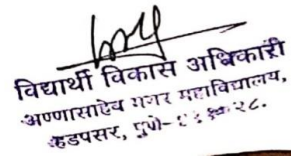 विद्यार्थी विकास अधिकारी
अण्णासाहेब मगर महाविद्यालय,
हडपसर, पुणे-